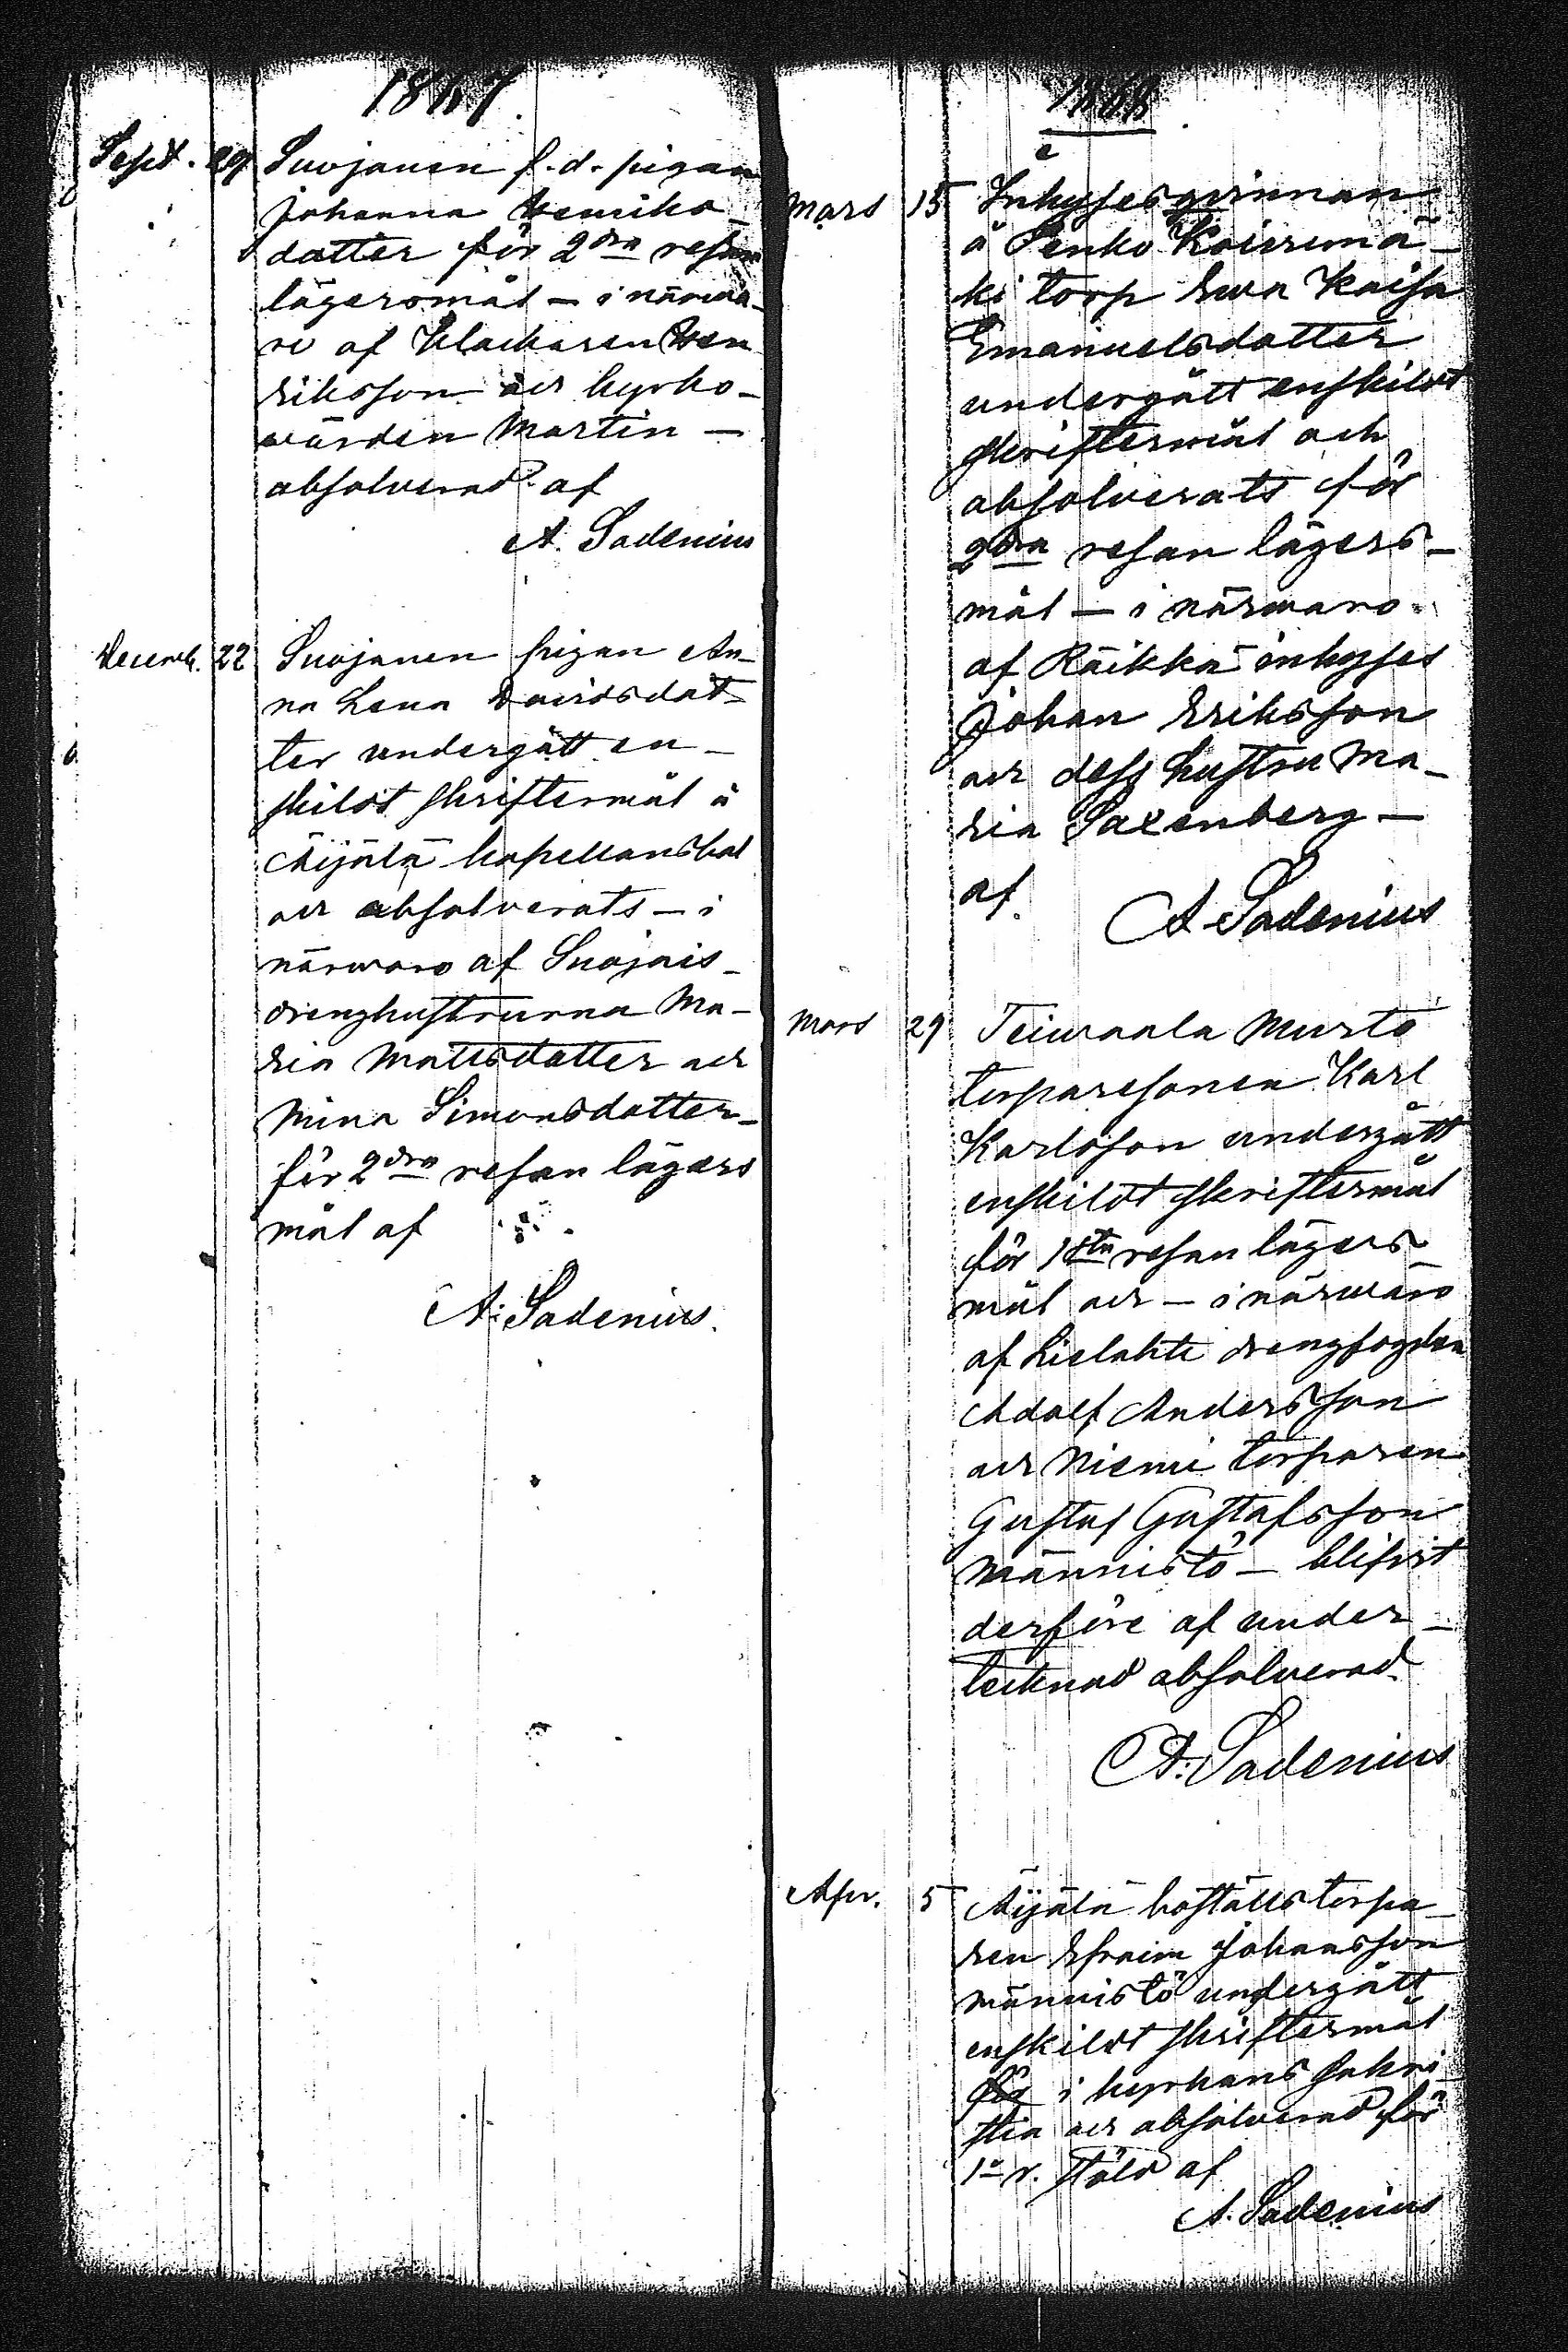 1867.
Sept. 29 Suojanen f. d. pigan
Johanna Henriks-
dotter för 2dra resan
lägersmål — i närva-
ro af Klockaren Hen
riksson och kyrko-
värden Martin —
absolverad af
A. Sadenius
Decemb. 22 Suojanen pigan An-
na Lena Davidsdot-
ter undergått en-
skildt skriftermål å
Äijälä kapellansbol
och absolverats — i
närvaro af Suojois-
drenghustrurna Ma-
ria Mattsdotter och
Mina Simonsdotter-
för 2dra resan lägers
mål af
A. Sadenius.
1868
Mars 15 Inhyses qvinnan
å Penko Koivumä-
ki torp Eva Kaisa
Emanuelsdotter
undergått enskildt
skriftermål och
absolverats för
2dra resan lägers-
mål — i närvaro
af Räikkä inhyses
Johan Eriksson
och dess hustru Ma-
ria Saxenberg —
af
A. Sadenius
Mars 29 Teivaala Murto
torparesonen Karl
Karlsson undergått
enskildt skriftermål
för 1sta resan lägers-
mål och — i närvaro
af Lielahti drengfogden
Adolf Andersson
och Niemi torparen
Gustaf Gustafsson
Männistö — blifvit
derföre af under-
tecknad absolverad.
A. Sadenius
Apr. 5 Äijälä boställs torpa-
ren Efraim Johansson
Männistö undergått
enskildt skriftermål
för i kyrkans sakri-
stia och absolverad för
1a r. stöld af
A. Sadenius